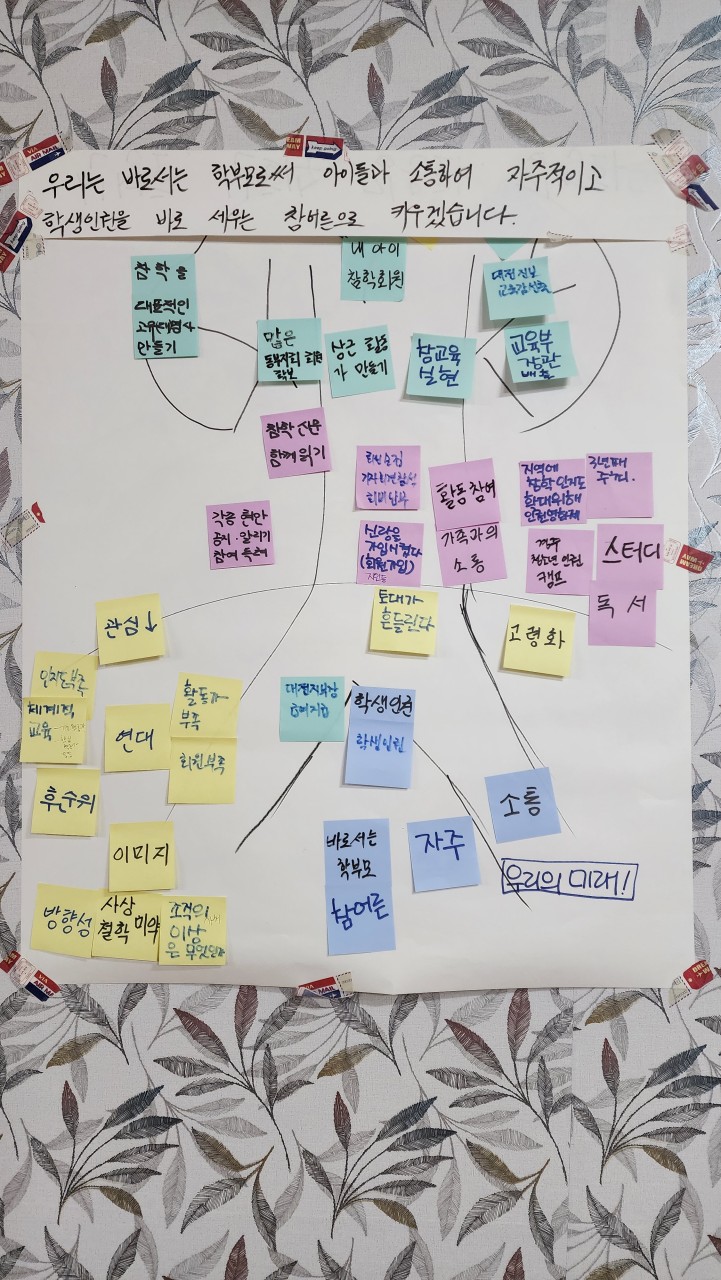 우리는 바로서는 학부모로써 아이들과 소통하여 자주적이고
학생인권을 바로 세우는 참어른으로 키우겠습니다.
내 아이
참학회원
참학을
대표적인
고유대명사
만들기
대전진보
교육감선출
많은
동부지회 회원
확보
상근 활동
가 만들기
참교육
실현
교육부
장관
배출
참학 신문
함께 읽기
각종 현안
공지·알리기
참여 독려
기자회견 참석
회비납부
신랑을
가입시켰다
(회원가입)
활동 참여
가족과의
소통
지역에
참학 인지도
확대위해
인권영화제
3년째
주최.
청소년 인권
캠프
스터디
독서
관심↓
토대가
흔들린다
고령화
인지도부족
체계적
교육
연대
활동가
부족
회원부족
후순위
이미지
방향성
사상
철학 미약
조직의
이상
은 무엇인가
학생인권
학생인권
소통
자주
바로서는
학부모
참어른
우리의 미래!
BY AIR MAIL
VIA
AIR MAIL